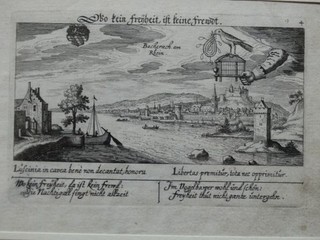 Wo kein freyheit, ist keine, freudt.
4
Bacherach am
Rhein.
Luscinia in cavea bene non decantat, honoru
Libertas premitur, tota nec opprimitur.
Wo kein freyheit, da ist kein freud:
Nachtigall singt nicht allzeit
Im Vogelbawer wohl und schön:
freyheit thut nicht gantz untergehn.